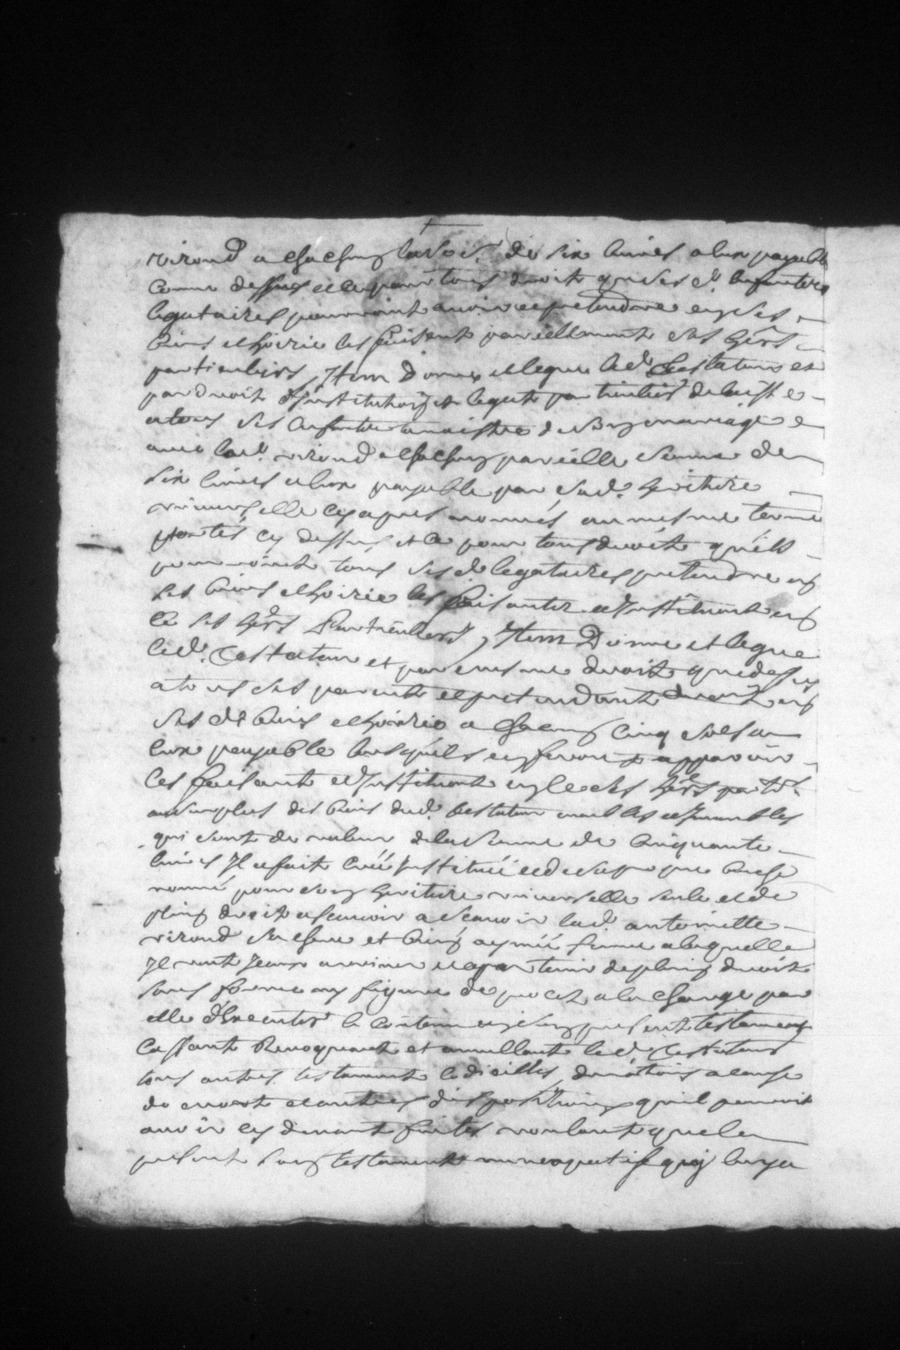 virond a chachung la so.e de six livres a lux payable
comme dessus et ce pour tous droits que ses d.t enfants et
legataires pourroint avoir et pretendre en ses
biens et hoirie les faisent pareillement ses hers
particuliers, Item Donne et legue led. testateur et
par droit d'institution et legat particulier delaisse
a tous ses enfants a naistre de son mariage
avec lad. virond a chachung pareille somme de
six livres a lux payable par sad. heritiere
universelle cy apres nommés au mesme terme
portés cy dessus et ce pour tous droits qu'ils
pourroint tous ses d. legataires pretendre en
ses biens et hoirie les faisantz et Instituant en
ce ses hers Particuliers, Item Donne et legue
led. testateur et par mesme droit que dessus
a tous ses parents et pretendants droit en
ses d.ts biens et hoirie a chacung cinq sols
lux payable lorsquils en feront apparoir
les faisant et Instituant en ce ses hers part.rs
au surplus des biens dud. testateur meubles et Immeubles
qui sont de valeur de la somme de cinquante
livres Il a fait creé Institué et de sa propre bouche
nommé pour son heritiere universelle seule et de
plein droit a scavoir lad. antoinette
virond sa chere et bien aymée femme a laquelle
Il veut Iceux arriver et apartenir de plein droit
sans forme ny figure de procez a la charge par
elle d'executer le contenu en son present testament
Cassant Revoquant et annullant led. testateur
tous autres testaments codicilles donations a cause
de mort et autres dispositions quil pourroit
avoir cy devant faites voulant que le
present sien testament nuncupatif quoy